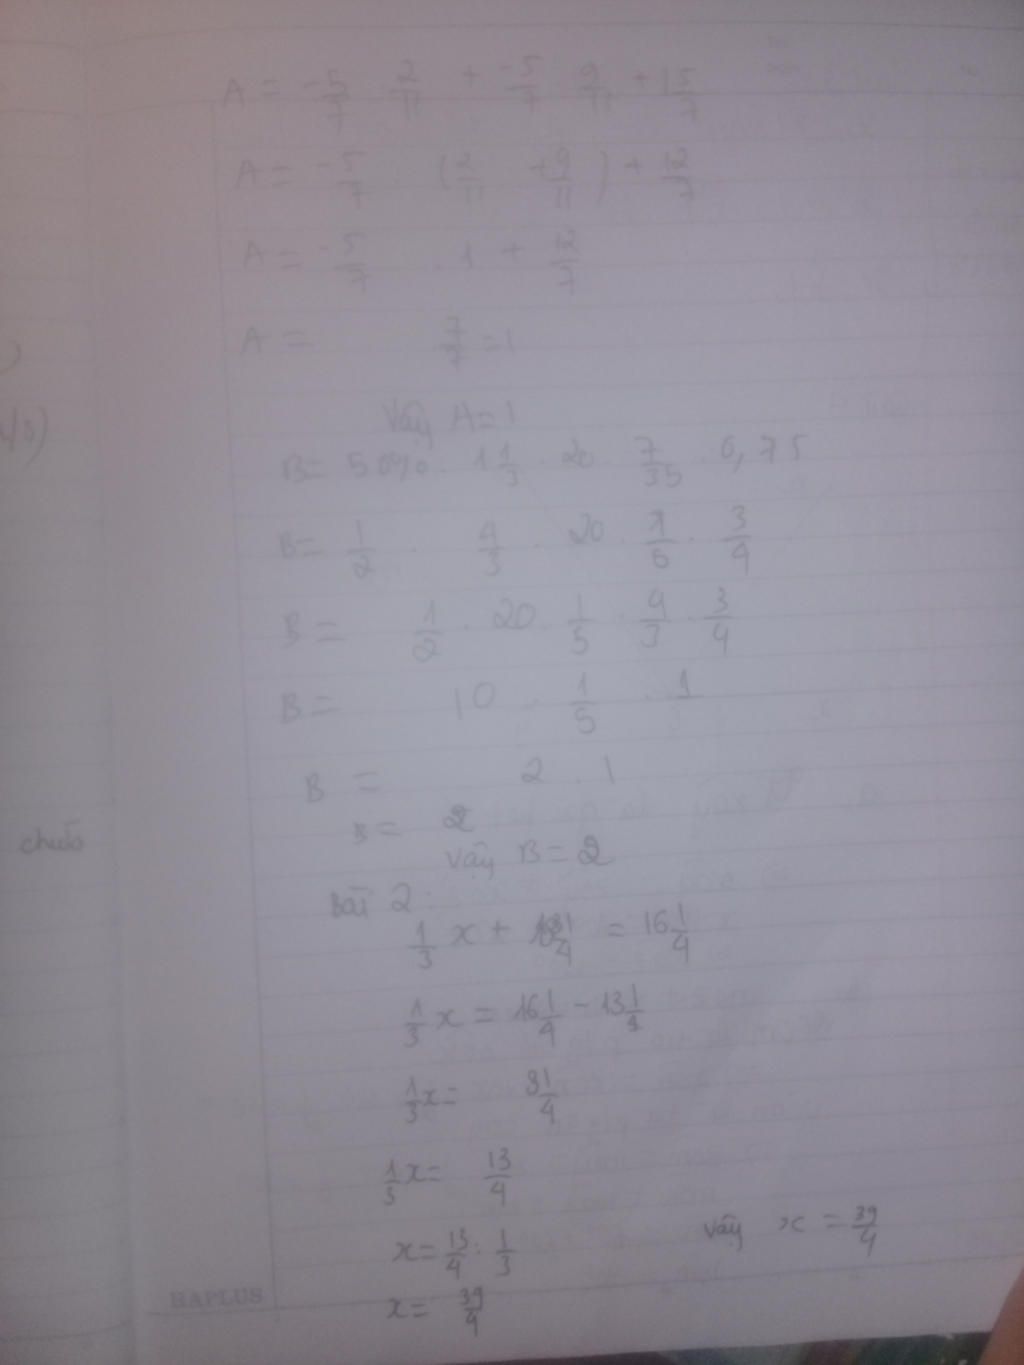 A = -5/7 . 2/11 + -5/7 . 9/11 + 1 5/7
A = -5/7 . (2/11 + 9/11) + 12/7
A = -5/7 . 1 + 12/7
A = 7/7 = 1
Vậy A = 1
B = 50% . 1 1/3 . 20 . 7/35 . 0,75
B = 1/2 . 4/3 . 20 . 1/5 . 3/4
B = 1/2 . 20 . 1/5 . 4/3 . 3/4
B = 10 . 1/5 . 1
B = 2 . 1
B = 2
Vậy B = 2
chuẩn
Bài 2:
1/3 x + 13 1/4 = 16 1/4
1/3 x = 16 1/4 - 13 1/4
1/3 x = 3 1/4
1/3 x = 13/4
x = 13/4 : 1/3
x = 39/4
Vậy x = 39/4
HAPLUS